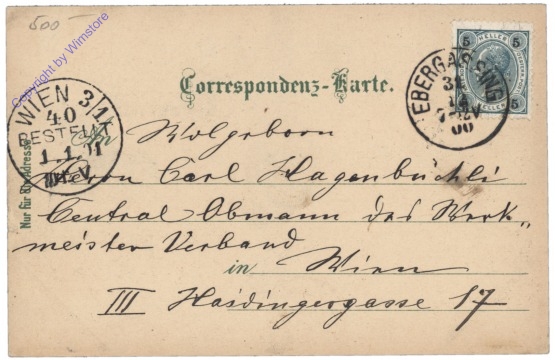 500
Copyright by Wimstore
Correspondenz-Karte.
5 HELLER 5
5
EBERGASSING
31
12
00
WIEN 3/1
40
BESTELLT
1.1.01
Nur für die Adresse
An
Wolgeborn
Herrn Carl Hagenbüchli
Central Obmann des Werk„
meister Verband
in Wien
III Haidingergasse 17